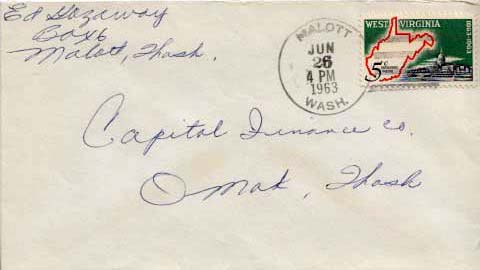 Ed Gazaway
Box 6
Malott, Wash.
MALOTT
JUN
26
4 PM
1963
WASH.
WEST VIRGINIA
1863-1963
5c
Capital Finance Co.
Omak, Wash